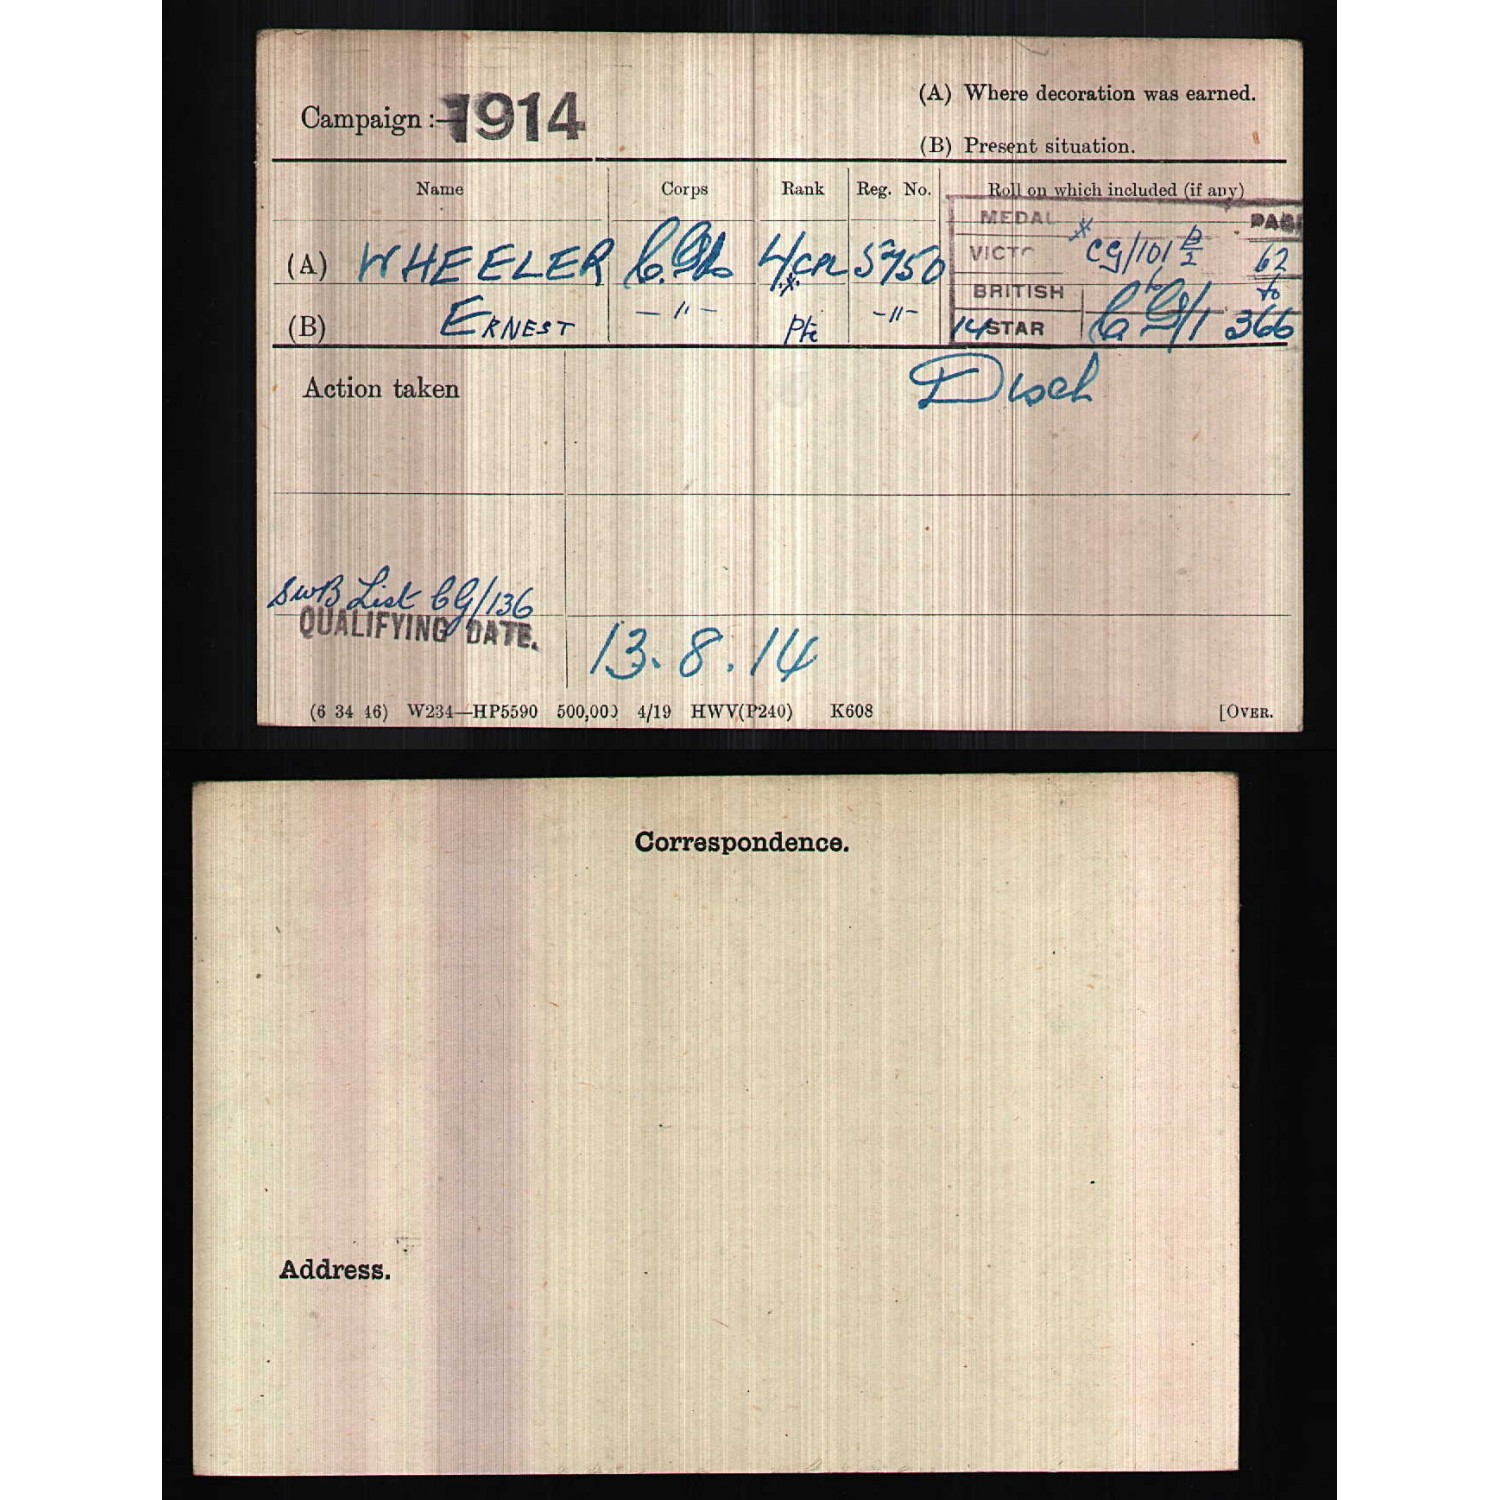 Campaign :— 1914
(A) Where decoration was earned.
(B) Present situation.
Name Corps Rank Reg. No. Roll on which included (if any)
MEDAL PAGE
(A) WHEELER C. Gds L/CPL 5750 VICTO * CG/101 B/2 62
BRITISH to to
(B) ERNEST — " — Pte — " — 14 STAR C. G/1 366
Action taken
Disch
SWB List CG/136
QUALIFYING DATE. 13.8.14
(6 34 46) W234—HP5590 500,000 4/19 HWV(P240) K608 [OVER.
Correspondence.
Address.